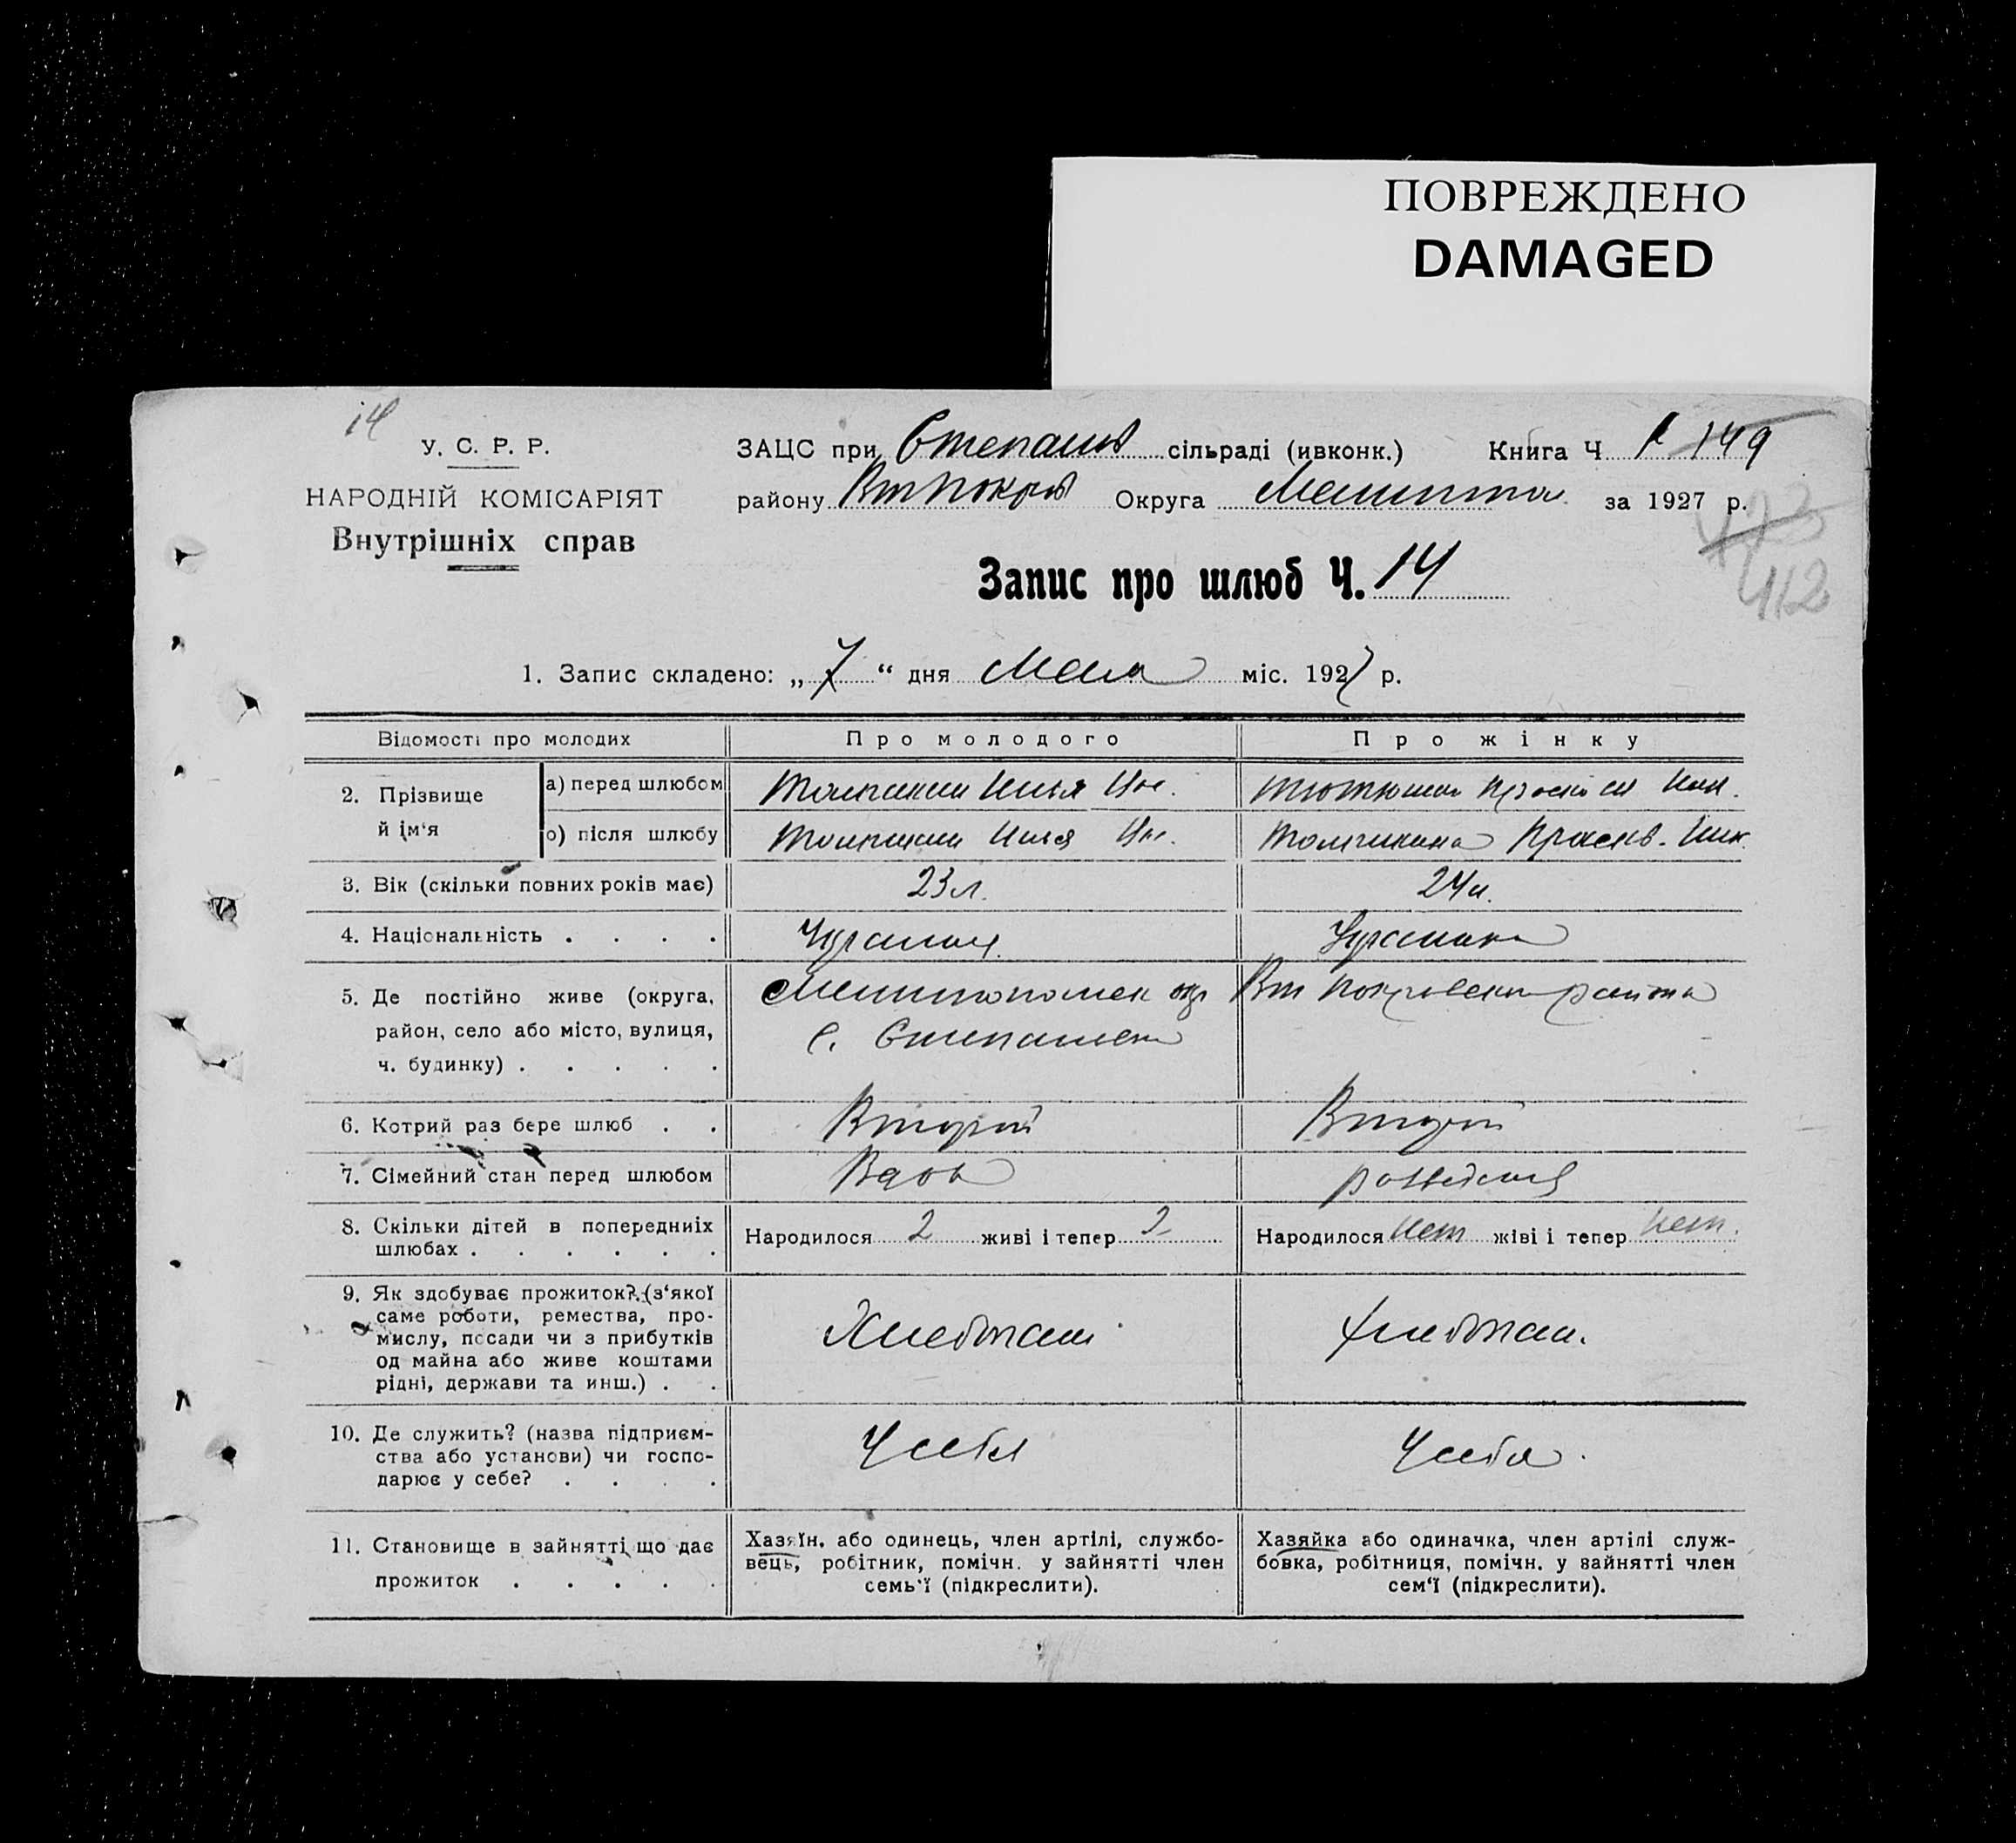 ПОВРЕЖДЕНО
DAMAGED
14
У. С. Р. Р.
НАРОДНІЙ КОМІСАРІЯТ
Внутрішніх справ
ЗАЦС при Степанів сільраді (ивконк.) Книга Ч. 149
району ВтПокров Округа за 1927 р.
112
Запис про шлюб Ч. 14
1. Запис складено: „7“ дня Мая міс. 1927 р.
Відомості про молодих
Про молодого
Про жінку
2. Прізвище й ім'я
а) перед шлюбом
Илья
о) після шлюбу
Илья
3. Вік (скільки повних років має)
23 л.
24 л.
4. Національність . . . .
5. Де постійно живе (округа,
район, село або місто, вулиця,
ч. будинку) . . . . .
с.
Вт Покровский района
6. Котрий раз бере шлюб . .
Второй
Второй
7. Сімейний стан перед шлюбом
Вдов
8. Скільки дітей в попередниіх
шлюбах . . . . . .
Народилося 2 живі і тепер 2
Народилося нет жіві і тепер нет.
9. Як здобуває прожиток? (з'якої
саме роботи, ремества, про-
мислу, посади чи з прибутків
од майна або живе коштами
рідні, держави та инш.) . .
Хлебопаш
Хлебопаш.
10. Де служить? (назва підприєм-
ства або установи) чи госпо-
дарює у себе? . . . .
У себя
У себя.
11. Становище в зайнятті що дає
прожиток . . . . .
Хазяїн, або одинець, член артілі, службо-
вець, робітник, помічн. у зайнятті член
семь'ї (підкреслити).
Хазяйка або одиначка, член артілі служ-
бовка, робітниця, помічн. у зайнятті член
сем'ї (підкреслити).